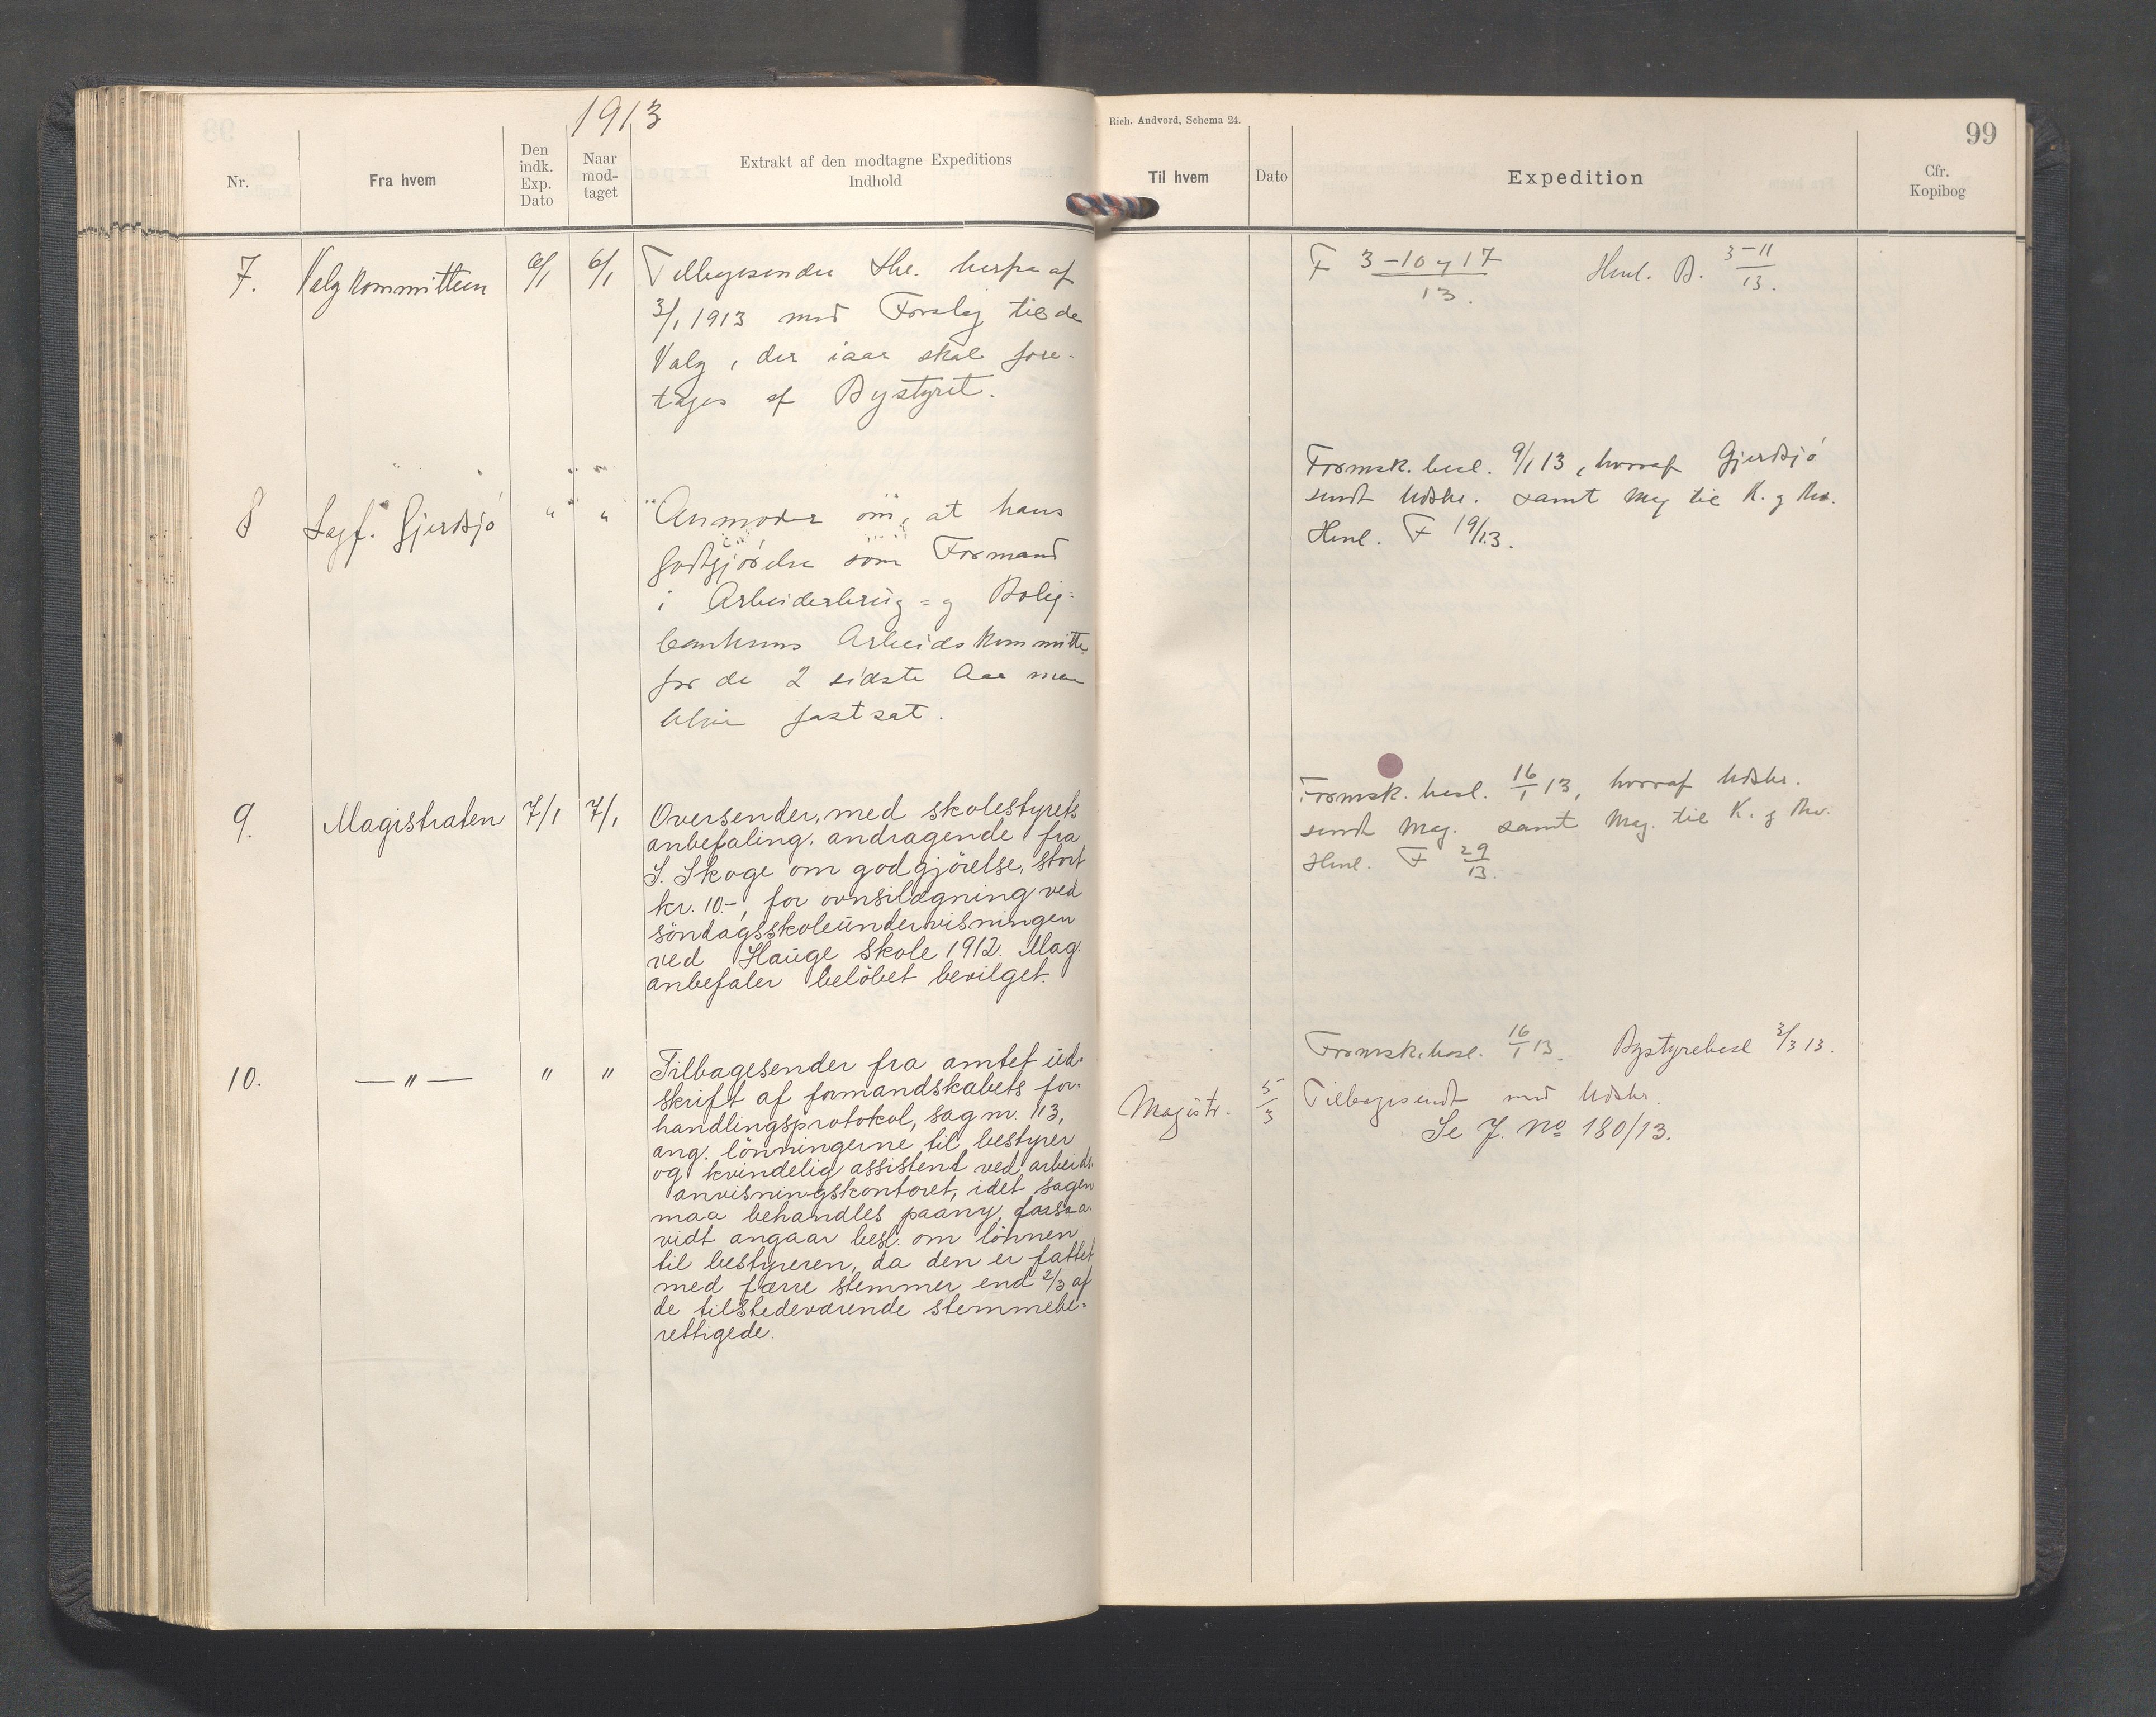 1913
Nr.
Fra hvem
Den
indk.
Exp.
Dato
Naar
mod-
taget
Extrakt af den modtagne Expeditions
Indhold
7.
Valgkommitteen
6/1
6/1
Tilbagesender Skr. herfra af
3/1 1913 med Forslag til de
Valg, der iaar skal fore-
tages af Bystyret.
8
Sagf. Gjerdsjö
"
"
Anmoder om, at hans
Godtgjörelse som Formand
i Arbeiderbrug= og Bolig-
bankens Arbeidskommitte
for de 2 sidste Aar maa
blive fastsat.
9.
Magistraten
7/1
7/1
Oversender, med skolestyrets
anbefaling, andragende fra
S. Skoge om godgjörelse, stort
kr. 10.-, for ovnsilægning ved
söndagsskoleundervisningen
ved Hauge skole 1912. Mag.
anbefaler belöbet bevilget.
10.
— " —
"
"
Tilbagesender fra amtet ud-
skrift af formandskabets for-
handlingsprotokol, sag nr. 113,
ang. lönningerne til bestyrer
og kvindelig assistent ved arbeids-
anvisningskontoret, idet sagen
maa behandles paany, forsaa-
vidt angaar besl. om lönnen
til bestyreren, da den er fattet
med færre stemmer end 2/3 af
de tilstedeværende stemmebe-
rettigede.
Rich. Andvord, Schema 24.
99
Til hvem
Dato
Expedition
Cfr.
Kopibog
F 3-10 og 17/13.
Henl. B. 3-11/13.
Formsk. besl. 9/1 13, hvoraf Gjerdsjö
sendt Udskr. samt Mag til K. og Rev.
Henl. F 19/13.
Formsk. besl. 16/1 13, hvoraf Udskr.
sendt Mag. samt Mag. til K. og Rev.
Henl. F 29/13.
Formsk. besl. 16/1 13. Bystyrebesl 3/3 13.
Magistr.
5/3
Tilbagesendt med Udskr.
Se J. No 180/13.